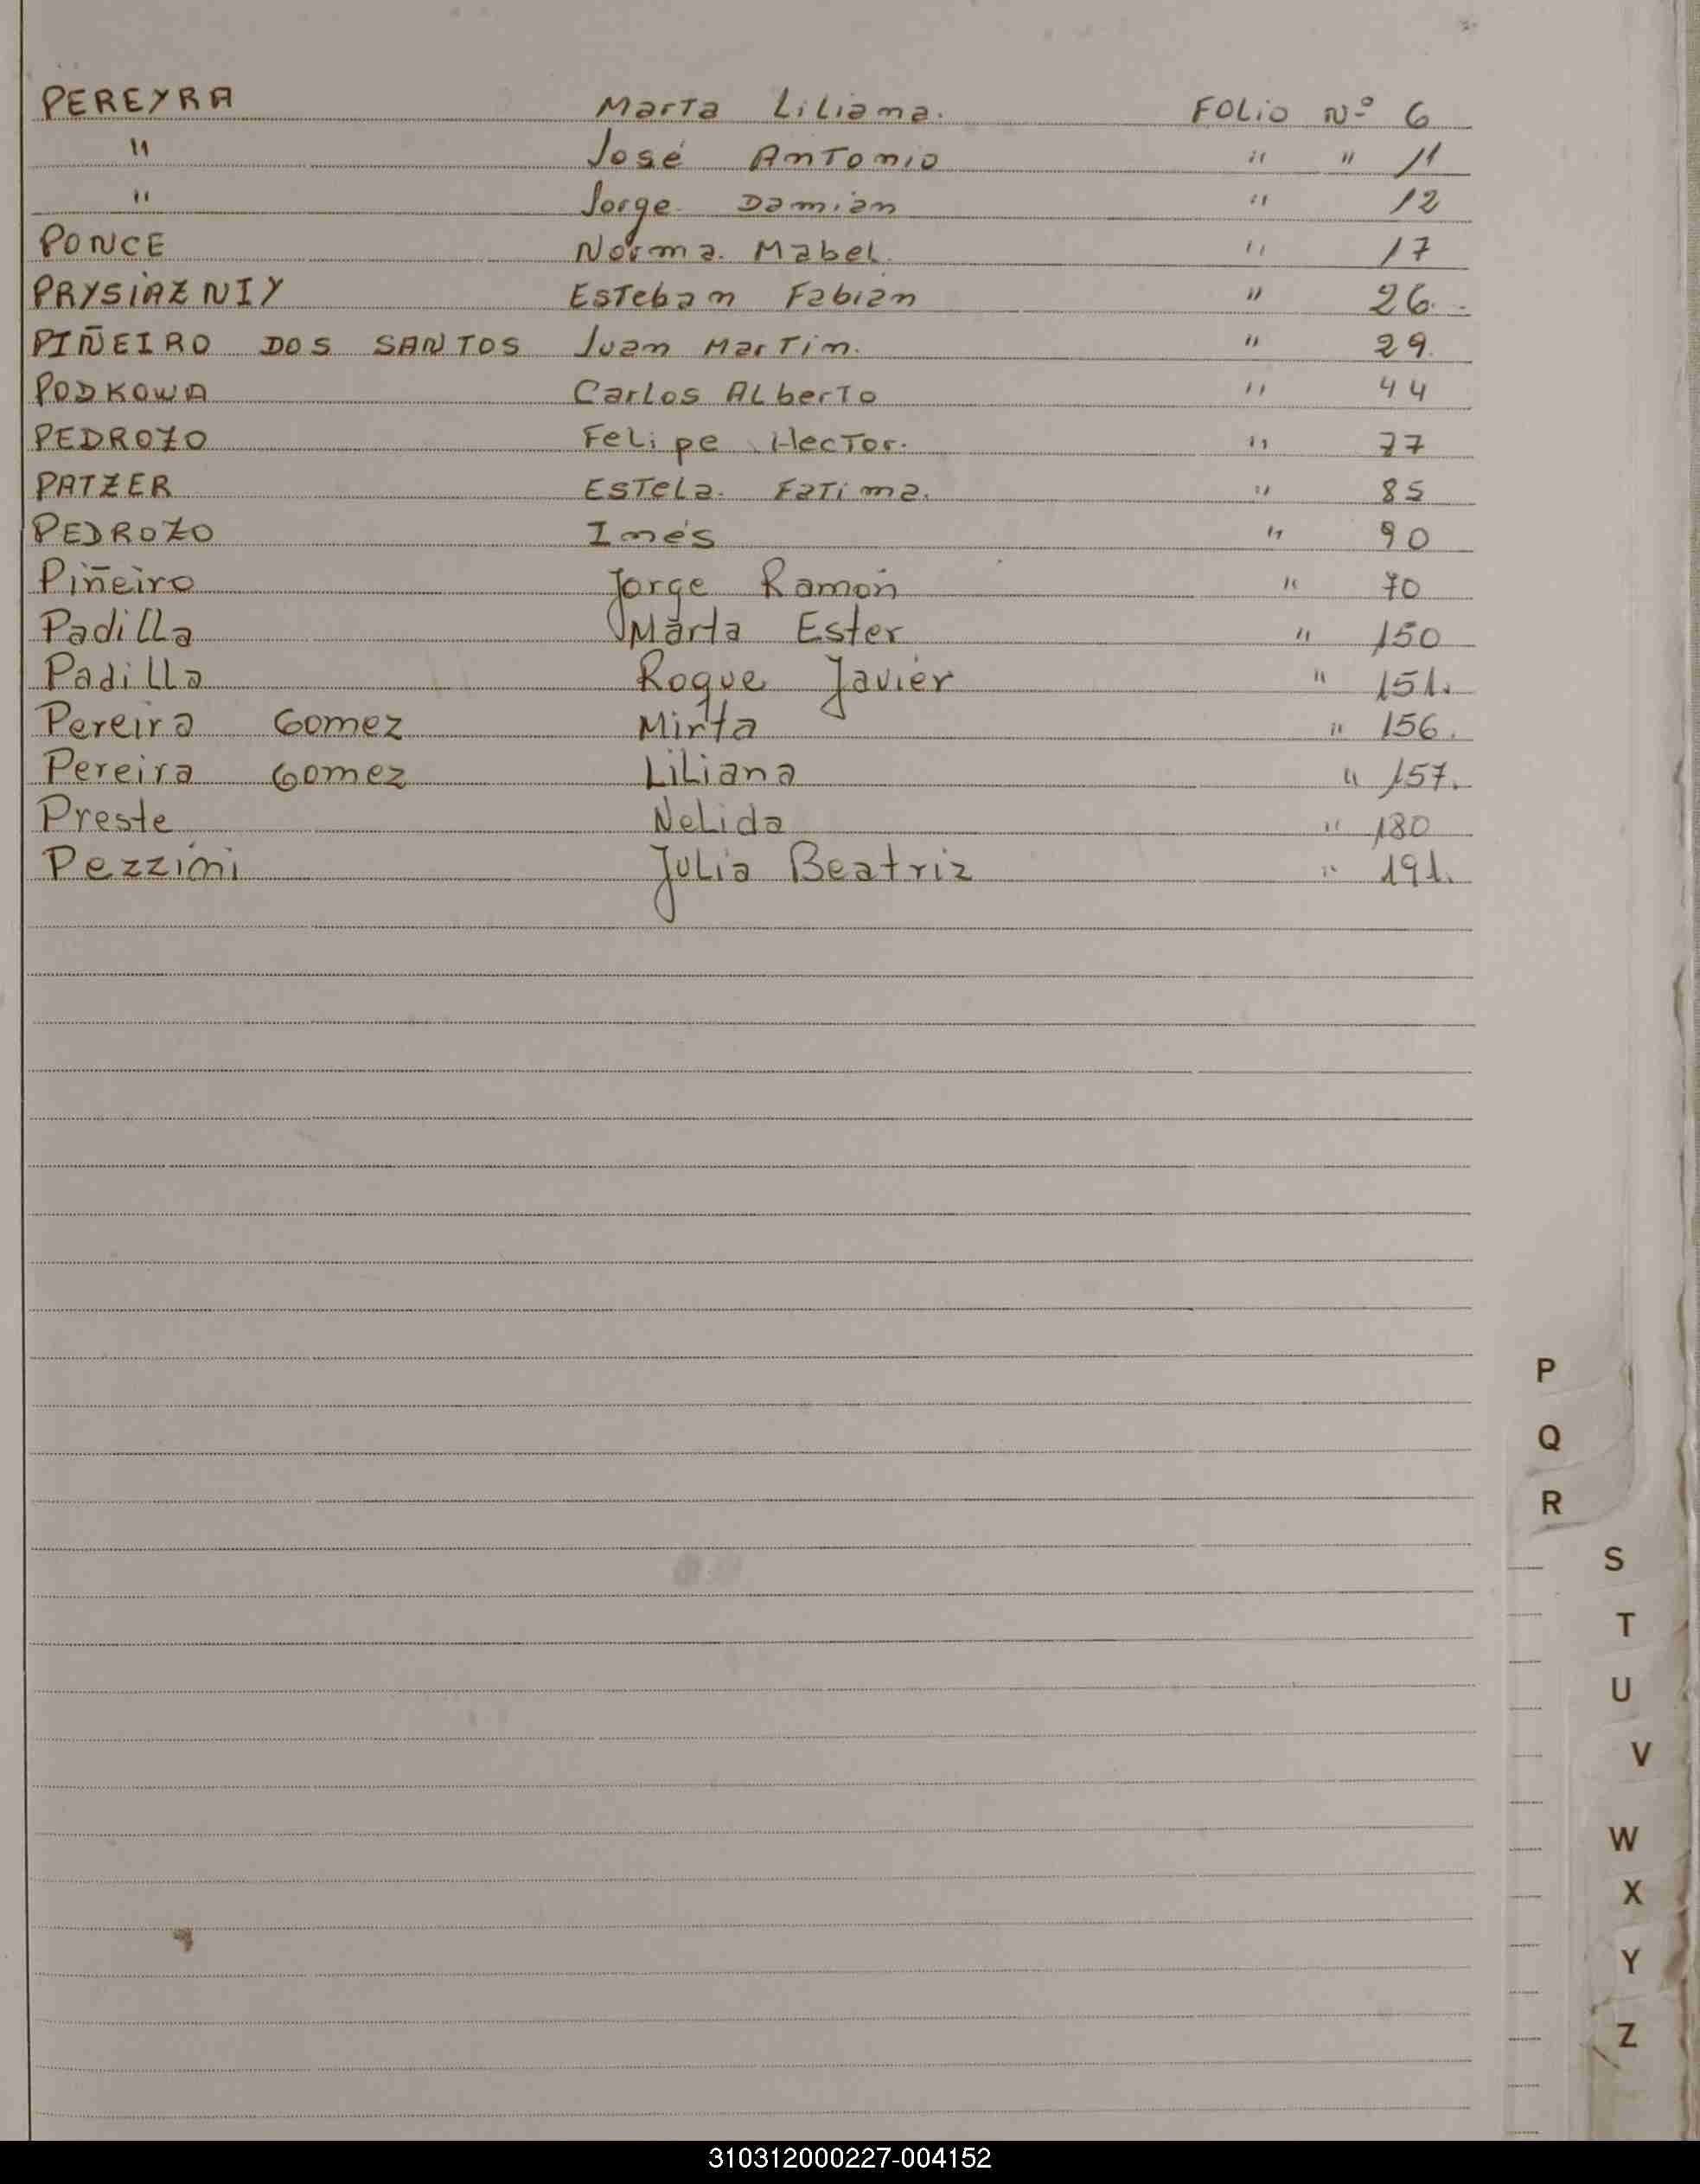 PEREYRA Marta Liliana. FOLIO Nº 6
" José Antonio " " 11
" Jorge Damián " 12
PONCE Norma Mabel. " 17
PRYSIAZNIY Esteban Fabián " 26.
PIÑEIRO DOS SANTOS Juan Martin. " 29.
PODKOWA Carlos Alberto " 44
PEDROZO Felipe Hector. " 77
PATZER Estela Fatima. " 85
PEDROZO Inés " 90
Piñeiro Jorge Ramón " 70
Padilla Marta Ester " 150
Padilla Roque Javier " 151.
Pereira Gomez Mirta " 156.
Pereira Gomez Liliana " 157.
Preste Nelida " 180
Pezzini Julia Beatriz " 191.
P
Q
R
S
T
U
V
W
X
Y
Z
310312000227-004152